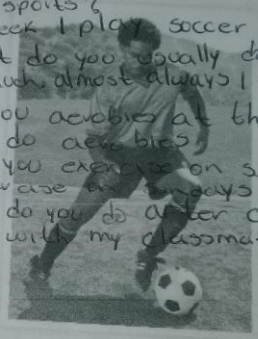 sports?
eek I play soccer
t do you usually d
uch, almost always I
ou aerobics at th
do aerobics
you exercise on s
ase on sundays
do you do after c
with my classma